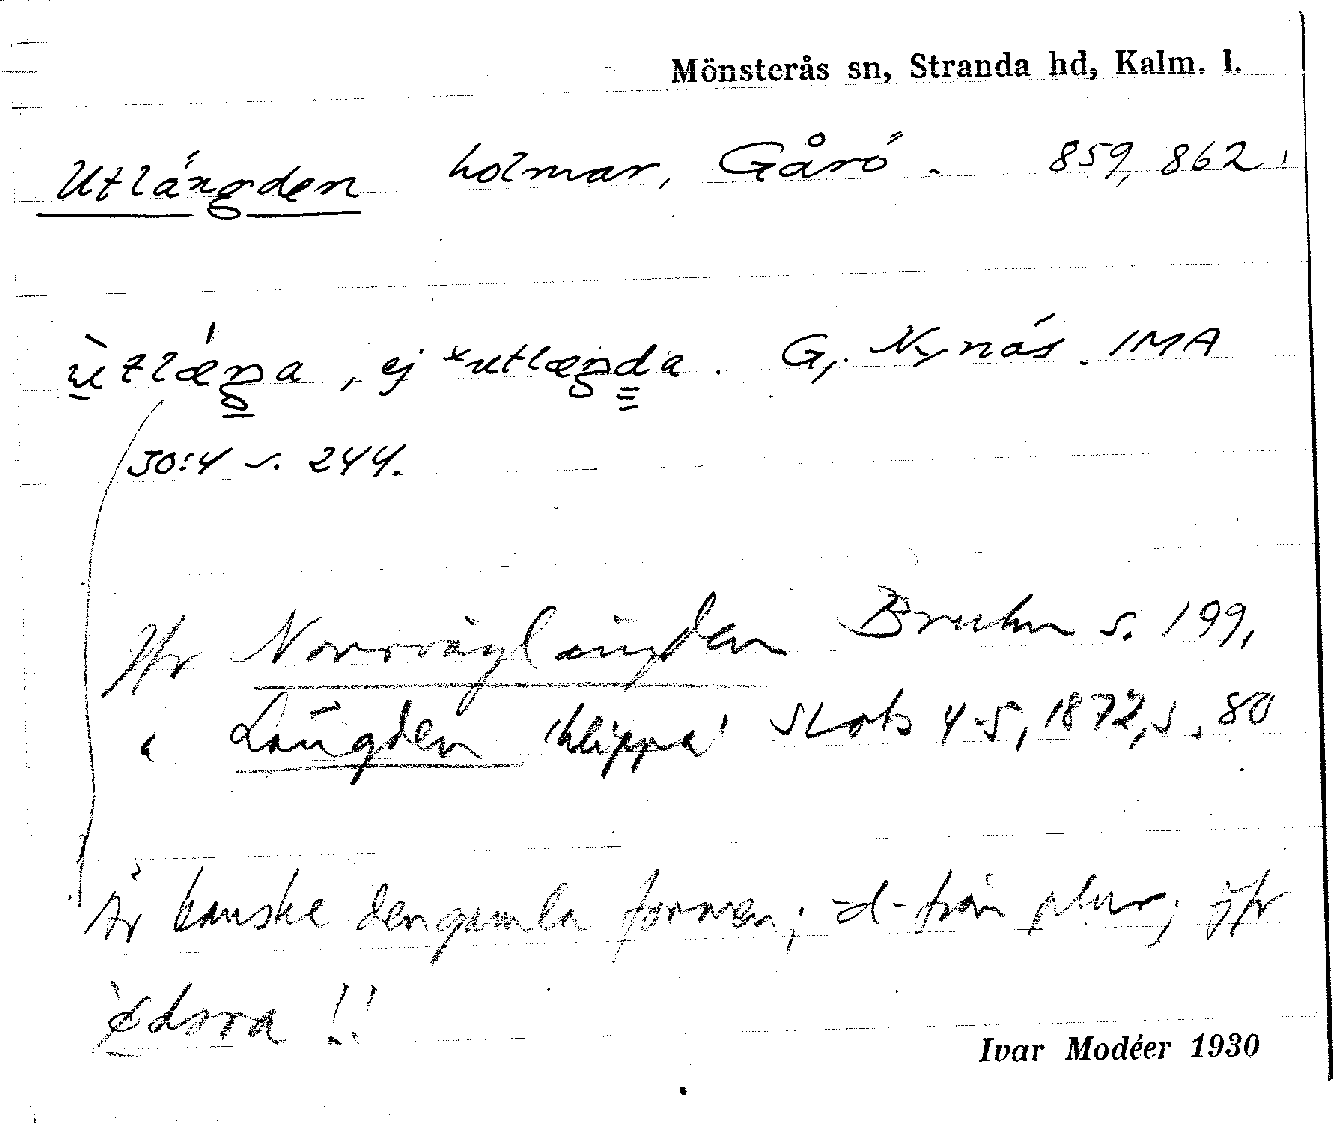 Mönsterås sn, Stranda hd, Kalm. l.
Utlängden holmar, Gårö. 859, 862.
ùtlæŋa, ej *utlæŋda. G, Nynäs. IMA
30:4 s. 244.
Jfr Norrväglängden Bruhn s. 199,
" Längden 'klippa' Slots 4-5, 1872, s. 80
Är kanske den gamla formen; -d- från plur; jfr
!!
Ivar Modéer 1930